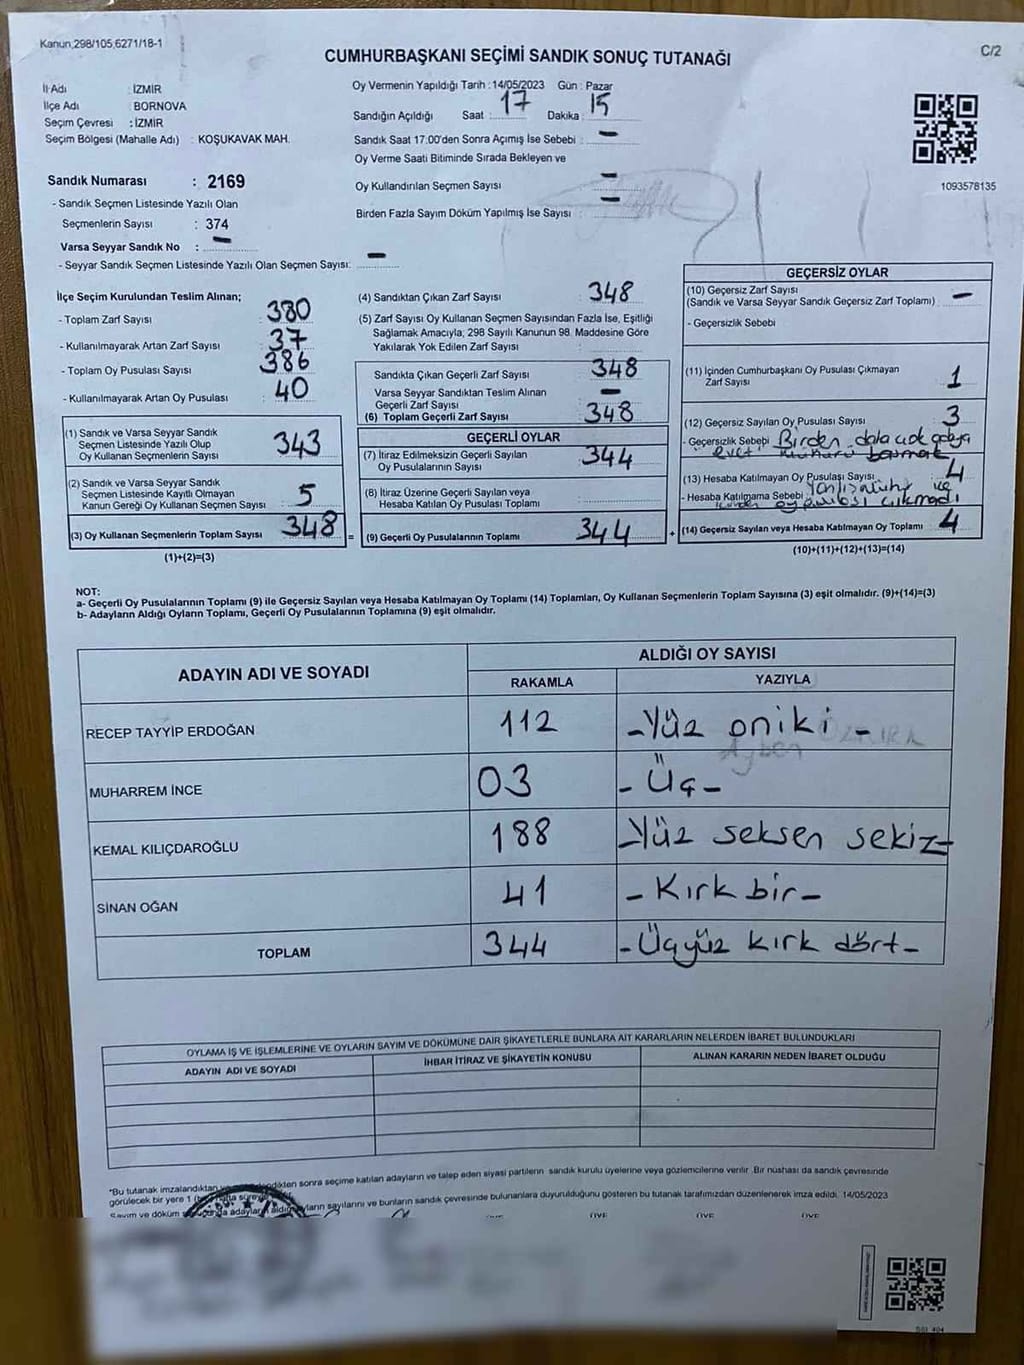 Kanun,298/105,6271/18-1
C/2
CUMHURBAŞKANI SEÇİMİ SANDIK SONUÇ TUTANAĞI
İl Adı : İZMİR
İlçe Adı : BORNOVA
Seçim Çevresi : İZMİR
Seçim Bölgesi (Mahalle Adı) : KOŞUKAVAK MAH.
Oy Vermenin Yapıldığı Tarih : 14/05/2023 Gün : Pazar
Sandığın Açıldığı Saat : 17 Dakika : 15
Sandık Saat 17.00'den Sonra Açımış İse Sebebi : -
Oy Verme Saati Bitiminde Sırada Bekleyen ve
Oy Kullandırılan Seçmen Sayısı : -
Birden Fazla Sayım Döküm Yapılmış İse Sayısı : -
1093578135
Sandık Numarası : 2169
- Sandık Seçmen Listesinde Yazılı Olan
Seçmenlerin Sayısı : 374
Varsa Seyyar Sandık No : -
- Seyyar Sandık Seçmen Listesinde Yazılı Olan Seçmen Sayısı: -
İlçe Seçim Kurulundan Teslim Alınan;
- Toplam Zarf Sayısı : 380
- Kullanılmayarak Artan Zarf Sayısı : 37
- Toplam Oy Pusulası Sayısı : 386
- Kullanılmayarak Artan Oy Pusulası : 40
(1) Sandık ve Varsa Seyyar Sandık
Seçmen Listesinde Yazılı Olup
Oy Kullanan Seçmenlerin Sayısı : 343
(2) Sandık ve Varsa Seyyar Sandık
Seçmen Listesinde Kayıtlı Olmayan
Kanun Gereği Oy Kullanan Seçmen Sayısı : 5
(3) Oy Kullanan Seçmenlerin Toplam Sayısı : 348 =
(1)+(2)=(3)
(4) Sandıktan Çıkan Zarf Sayısı : 348
(5) Zarf Sayısı Oy Kullanan Seçmen Sayısından Fazla İse, Eşitliği
Sağlamak Amacıyla; 298 Sayılı Kanunun 98. Maddesine Göre
Yakılarak Yok Edilen Zarf Sayısı :
Sandıkta Çıkan Geçerli Zarf Sayısı : 348
Varsa Seyyar Sandıktan Teslim Alınan
Geçerli Zarf Sayısı : -
(6) Toplam Geçerli Zarf Sayısı : 348
GEÇERLİ OYLAR
(7) İtiraz Edilmeksizin Geçerli Sayılan
Oy Pusulalarının Sayısı : 344
(8) İtiraz Üzerine Geçerli Sayılan veya
Hesaba Katılan Oy Pusulası Toplamı :
(9) Geçerli Oy Pusulalarının Toplamı : 344 +
GEÇERSİZ OYLAR
(10) Geçersiz Zarf Sayısı
(Sandık ve Varsa Seyyar Sandık Geçersiz Zarf Toplamı) : -
- Geçersizlik Sebebi :
(11) İçinden Cumhurbaşkanı Oy Pusulası Çıkmayan
Zarf Sayısı : 1
(12) Geçersiz Sayılan Oy Pusulası Sayısı : 3
- Geçersizlik Sebebi : Birden
evet mührü basmak
(13) Hesaba Katılmayan Oy Pusulası Sayısı : 4
- Hesaba Katılmama Sebebi :
çıkmadı
(14) Geçersiz Sayılan veya Hesaba Katılmayan Oy Toplamı : 4
(10)+(11)+(12)+(13)=(14)
NOT:
a- Geçerli Oy Pusulalarının Toplamı (9) ile Geçersiz Sayılan veya Hesaba Katılmayan Oy Toplamı (14) Toplamları, Oy Kullanan Seçmenlerin Toplam Sayısına (3) eşit olmalıdır. (9)+(14)=(3)
b- Adayların Aldığı Oyların Toplamı, Geçerli Oy Pusulalarının Toplamına (9) eşit olmalıdır.
ADAYIN ADI VE SOYADI
ALDIĞI OY SAYISI
RAKAMLA YAZIYLA
RECEP TAYYİP ERDOĞAN 112 -Yüz oniki-
MUHARREM İNCE 03 -Üç-
KEMAL KILIÇDAROĞLU 188 -Yüz seksen sekiz-
SİNAN OĞAN 41 -Kırk bir-
TOPLAM 344 -Üçyüz kırk dört-
OYLAMA İŞ VE İŞLEMLERİNE VE OYLARIN SAYIM VE DÖKÜMÜNE DAİR ŞİKAYETLERLE BUNLARA AİT KARARLARIN NELERDEN İBARET BULUNDUKLARI
ADAYIN ADI VE SOYADI İHBAR İTİRAZ VE ŞİKAYETİN KONUSU ALINAN KARARIN NEDEN İBARET OLDUĞU
"Bu tutanak imzalandıktan sonra seçime katılan adayların ve talep eden siyasi partilerin sandık kurulu üyelerine veya gözlemcilerine verilir. Bir nüshası da sandık çevresinde
görülecek bir yere 1 hafta süreyle
Sayım ve döküm sayılarını ve bunların sandık çevresinde bulunanlara duyurulduğunu gösteren bu tutanak tarafımızdan düzenlenerek imza edildi. 14/05/2023